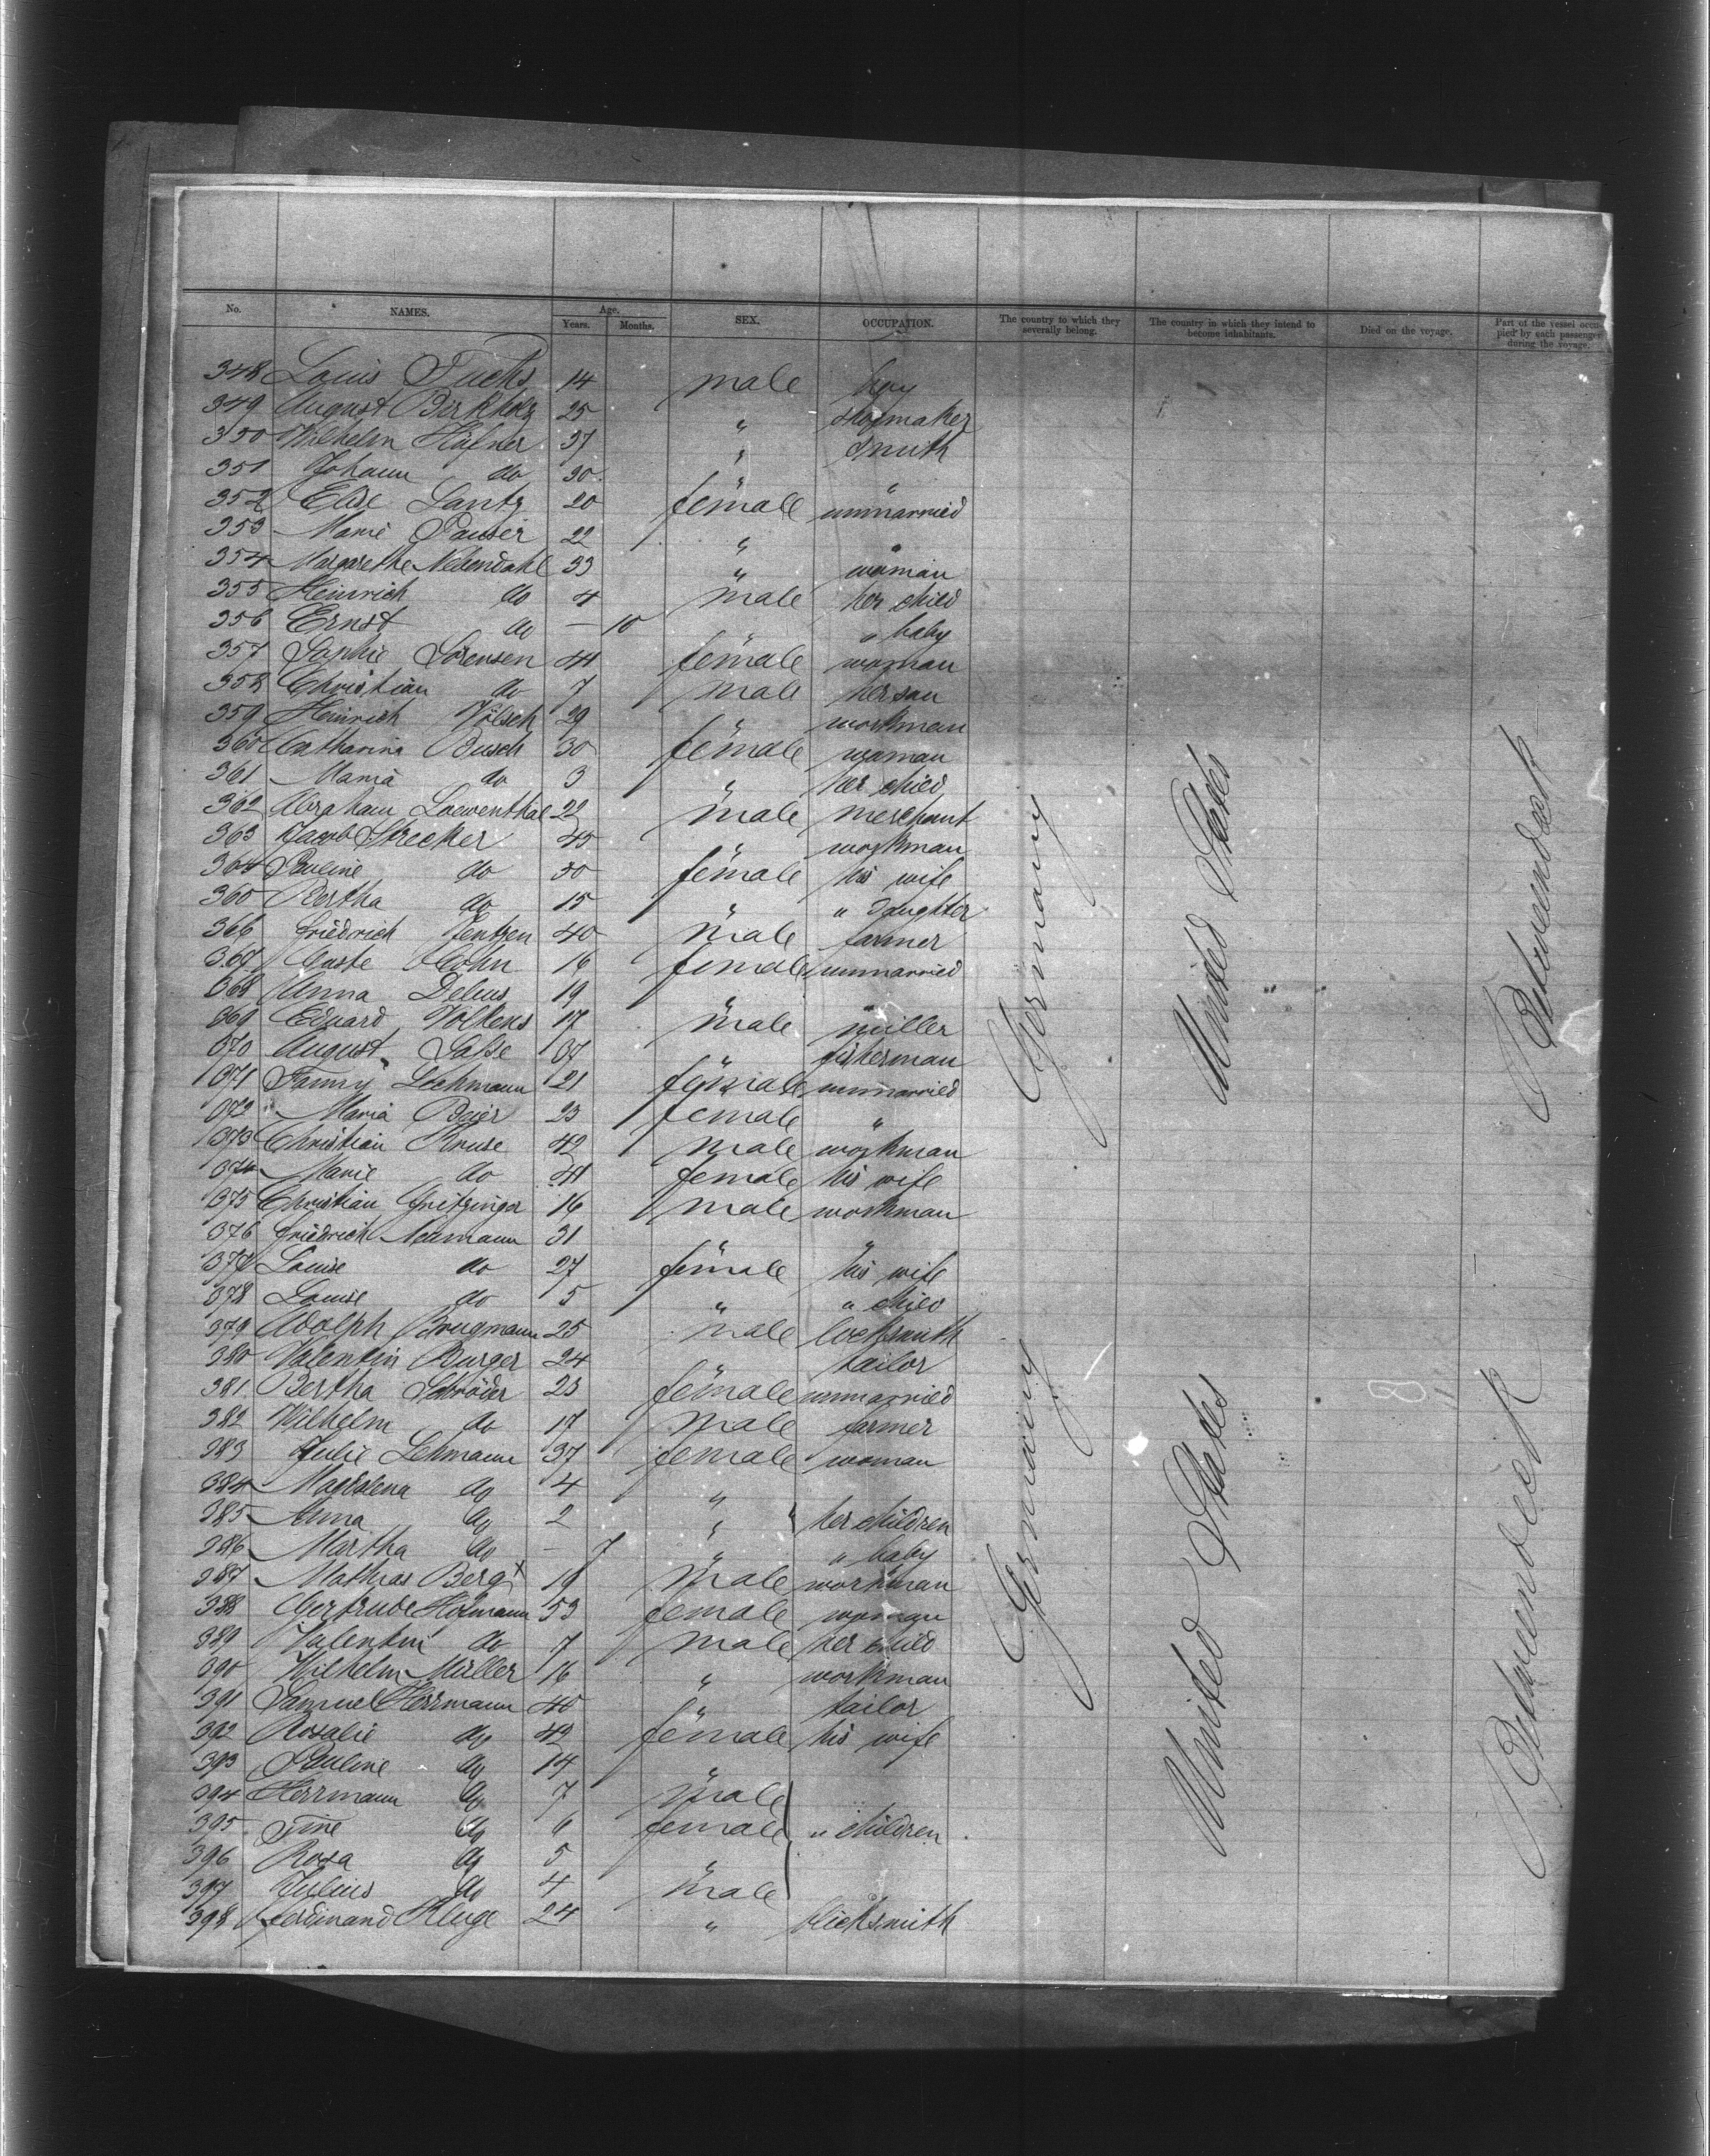 No. NAMES. Age. Years. Months. SEX. OCCUPATION. The country to which they severally belong. The country in which they intend to become inhabitants. Died on the voyage. Part of the vessel occupied by each passenger during the voyage.
348 Louis Fuchs 14 male boy
349 August Birkholz 25 " shoemaker
350 Wilhelm Häfner 37 " smith
351 Johann do 30 " "
352 Elise Lantz 20 female unmarried
353 Marie Pauser 22 " "
354 Margarethe Nebendahl 33 " woman
355 Heinrich do 4 male her child
356 Ernst do — 10 " " baby
357 Sophie Sörensen 44 female woman
358 Christian do 7 male her son
359 Heinrich Völsch 29 " workman
360 Catharina Busch 30 female woman
361 Maria do 3 " her child
362 Abraham Loewenthal 22 male merchant
363 Jacob Strecker 45 " workman
364 Pauline do 50 female his wife
365 Bertha do 15 " " daughter
366 Friedrich Jentzen 40 male farmer
367 Caste Cohn 16 female unmarried
368 Anna Delius 19 " "
369 Eduard Volkens 17 male miller
370 August Sasse 37 " fisherman
371 Fanny Lochmann 21 female unmarried
372 Maria Beier 23 female "
373 Christian Kruse 42 male workman
374 Marie do 41 female his wife
375 Christian Gritzinger 16 male workman
376 Friedrich Neumann 31 " "
377 Louise do 27 female his wife
378 Louise do 5 " " child
379 Adolph Brugmann 25 male locksmith
380 Valentin Burger 24 " tailor
381 Bertha Schröder 23 female unmarried
382 Wilhelm do 17 male farmer
383 Julie Lehmann 37 female woman
384 Magdalena do 4 "
385 Anna do 2 " her children
386 Martha do — 7 " " baby
387 Mathias Berg x 19 male workman
388 Gertrude Hofmann 53 female woman
389 Valentin do 7 male her child
390 Wilhelm Müller 16 " workman
391 Samuel Herrmann 40 " tailor
392 Rosalie do 42 female his wife
393 Pauline do 14 "
394 Herrmann do 7 male
395 Tine do 6 female " children
396 Rosa do 5 "
397 Julius do 4 male
398 Ferdinand Kluge 24 " blicksmith
Germany
United States
Betweendeck
Germany
United States
Betweendeck